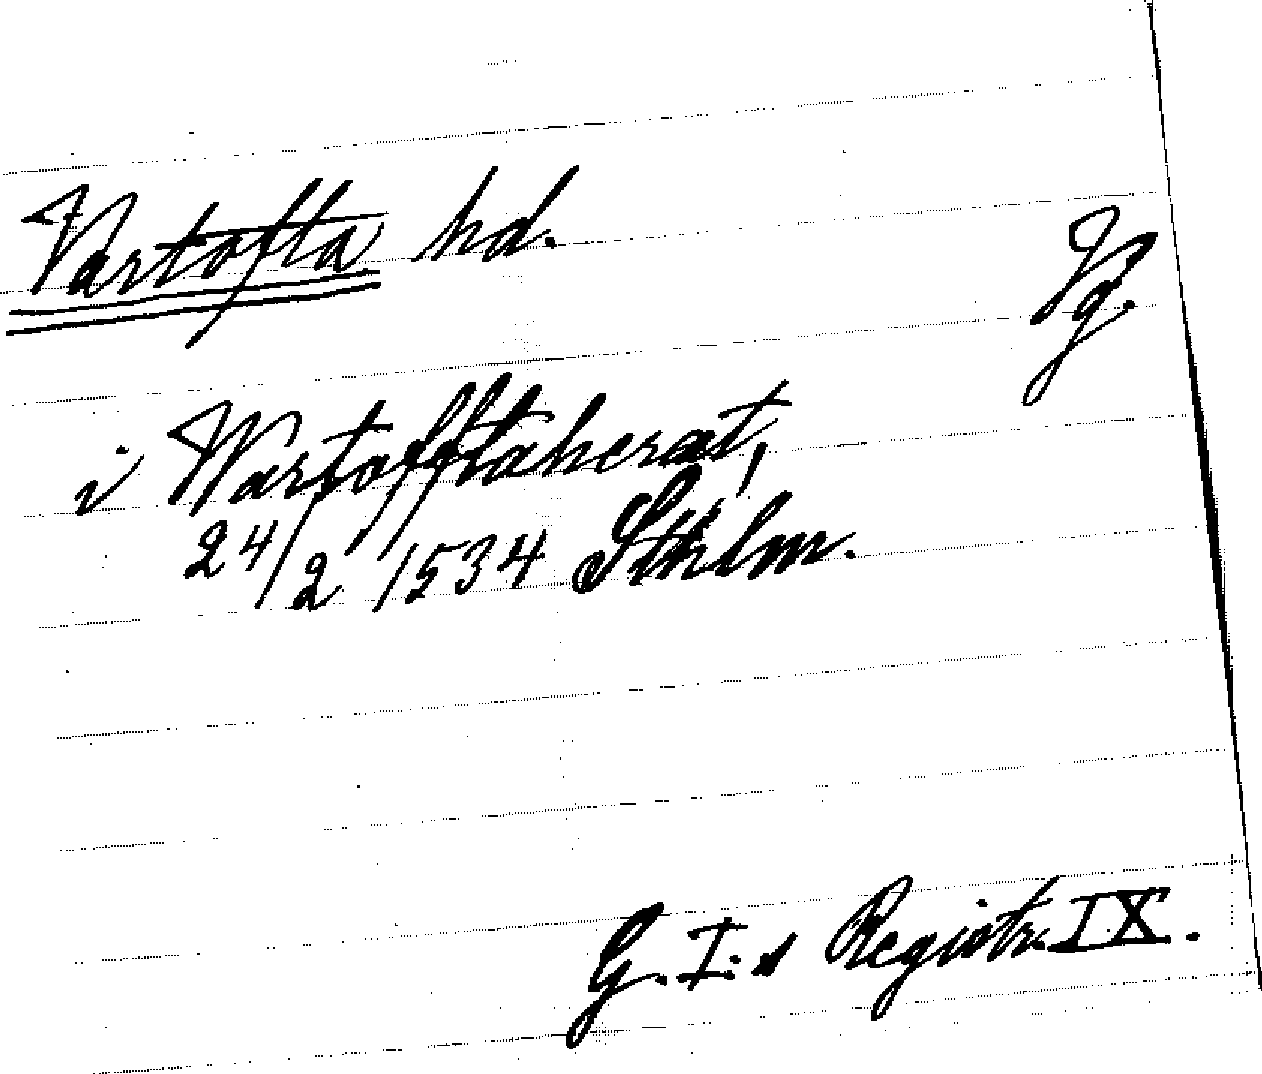 Vartofta hd.
Vg.
i Wartofftaherat,
24/2 1534 Sthlm.
G. I:s Registr. IX.